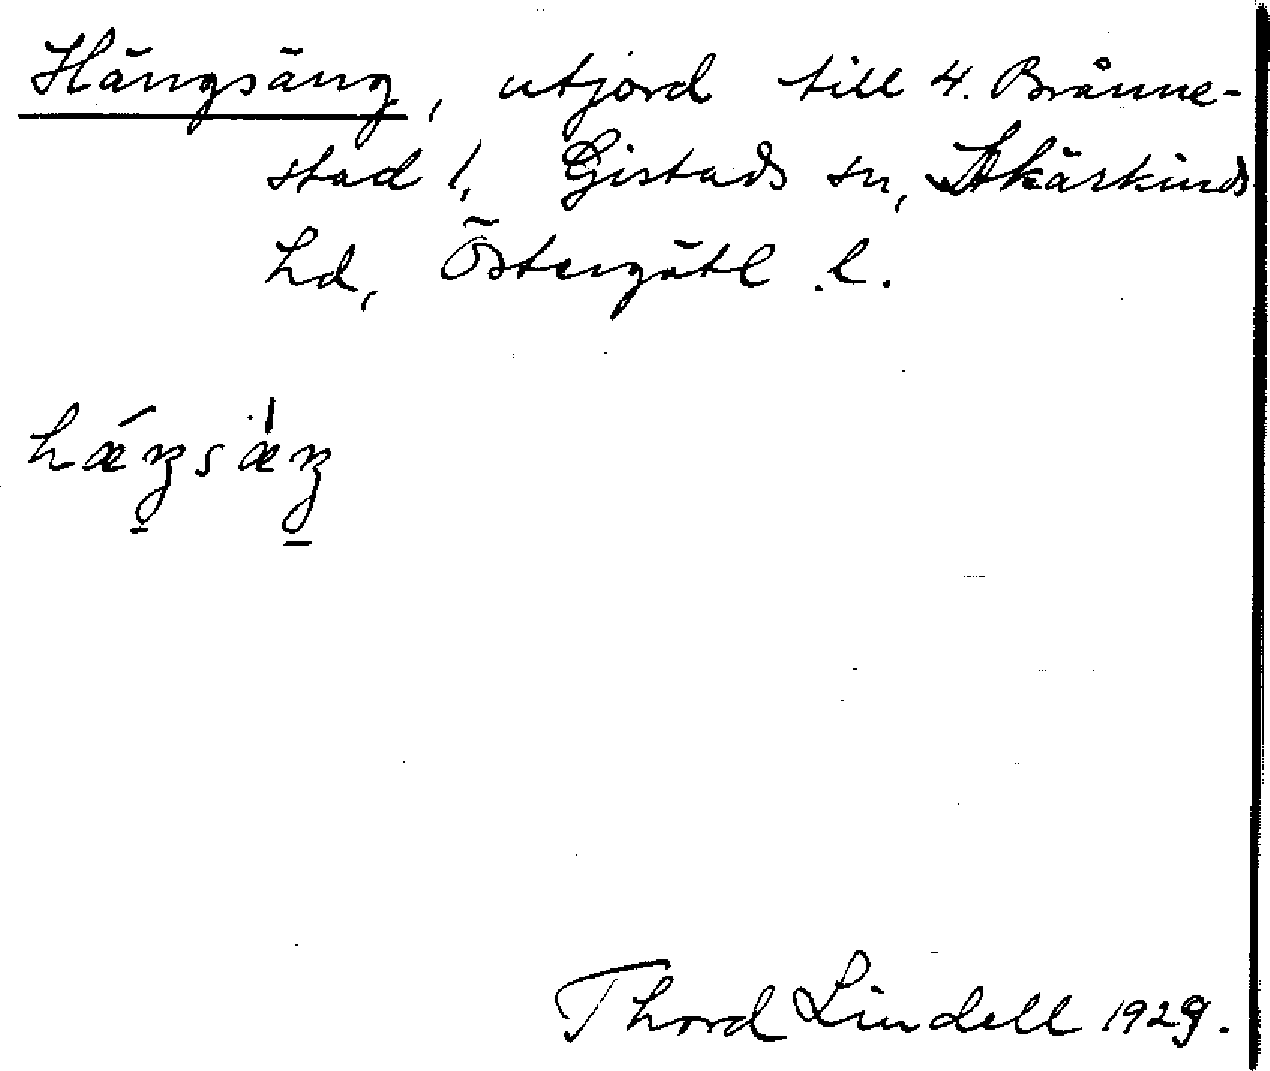 Hängsäng, utjord till 4. Brånne-
stad 1, Gistads sn, Åkärkinds
hd, Östergötl. l.
hǽŋsæ̀ŋ
Thord Lindell 1929.